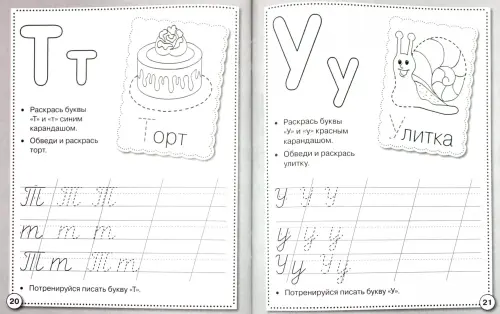 Т т
• Раскрась буквы
«Т» и «т» синим
карандашом.
• Обведи и раскрась
торт.
Торт
Т Т Т
т т т
Т т Т т
• Потренируйся писать букву «Т».
20
У у
• Раскрась буквы
«У» и «у» красным
карандашом.
• Обведи и раскрась
улитку.
Улитка
У У У
у у у
У у У у
• Потренируйся писать букву «У».
21